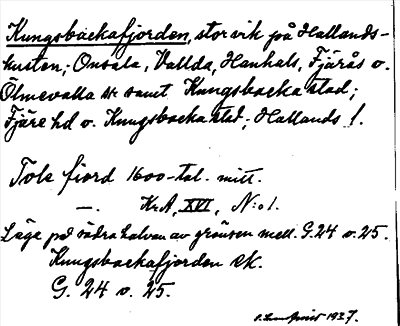 Kungsbackafjorden, stor vik på Hallands-
kusten; Onsala, Vallda, Hanhals, Fjärås o.
Ölmevalla snr samt Kungsbacka stad;
Fjäre hd o. Kungsbacka stad; Hallands l.
Tols fiord 1600-tal. mitt.
—. KrA, XVI, N:o 1.
Läge på södra halvan av gränsen mell. G.24 o. 25.
Kungsbackafjorden sk.
G. 24 o. 25.
1937.